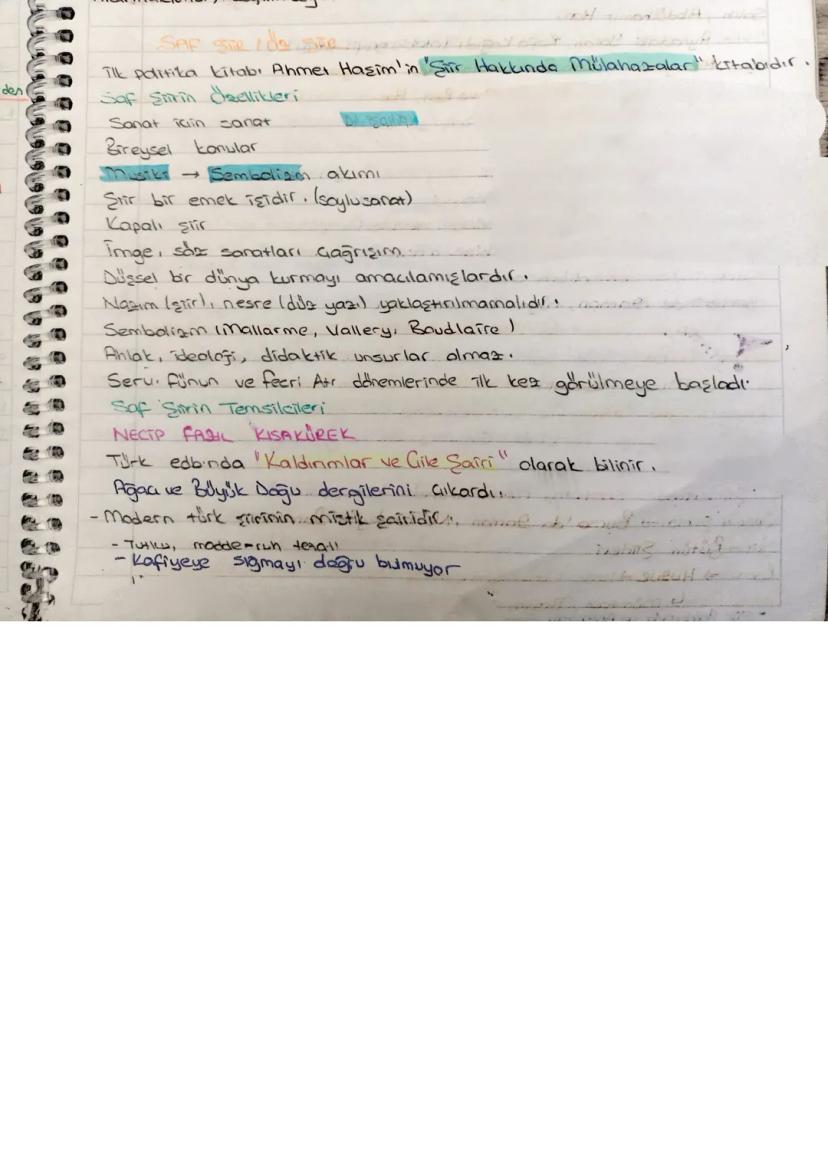 SAF ŞİİR / ÖZ ŞİİR
İlk politika kitabı Ahmet Haşim'in "Şiir Hakkında Mülahazalar" kitabıdır.
den
Saf Şiirin Özellikleri
Sanat için sanat
Bireysel konular
Musiki → Sembolizm akımı
Şiir bir emek işidir. (soylu sanat)
Kapalı şiir
İmge, söz sanatları çağrışım
Düşsel bir dünya kurmayı amacılamışlardır.
Nazım (şiir), nesre (düz yazı) yaklaştırılmamalıdır.
Sembolizm (Mallarme, Vallery, Baudlaire)
Ahlak, ideoloji, didaktik unsurlar almaz.
Servi. Fünun ve fecri Ati dönemlerinde ilk kez görülmeye başladı.
Saf Şiirin Temsilcileri
NECİP FAZIL KISAKÜREK
Türk edbında "Kaldırımlar ve Çile Şairi" olarak bilinir.
Ağacı ve Büyük Doğu dergilerini çıkardı.
- Modern türk şiirinin mistik şairidir.
- Tutku, madde-ruh
- Kafiyeye sığmayı doğru bulmuyor